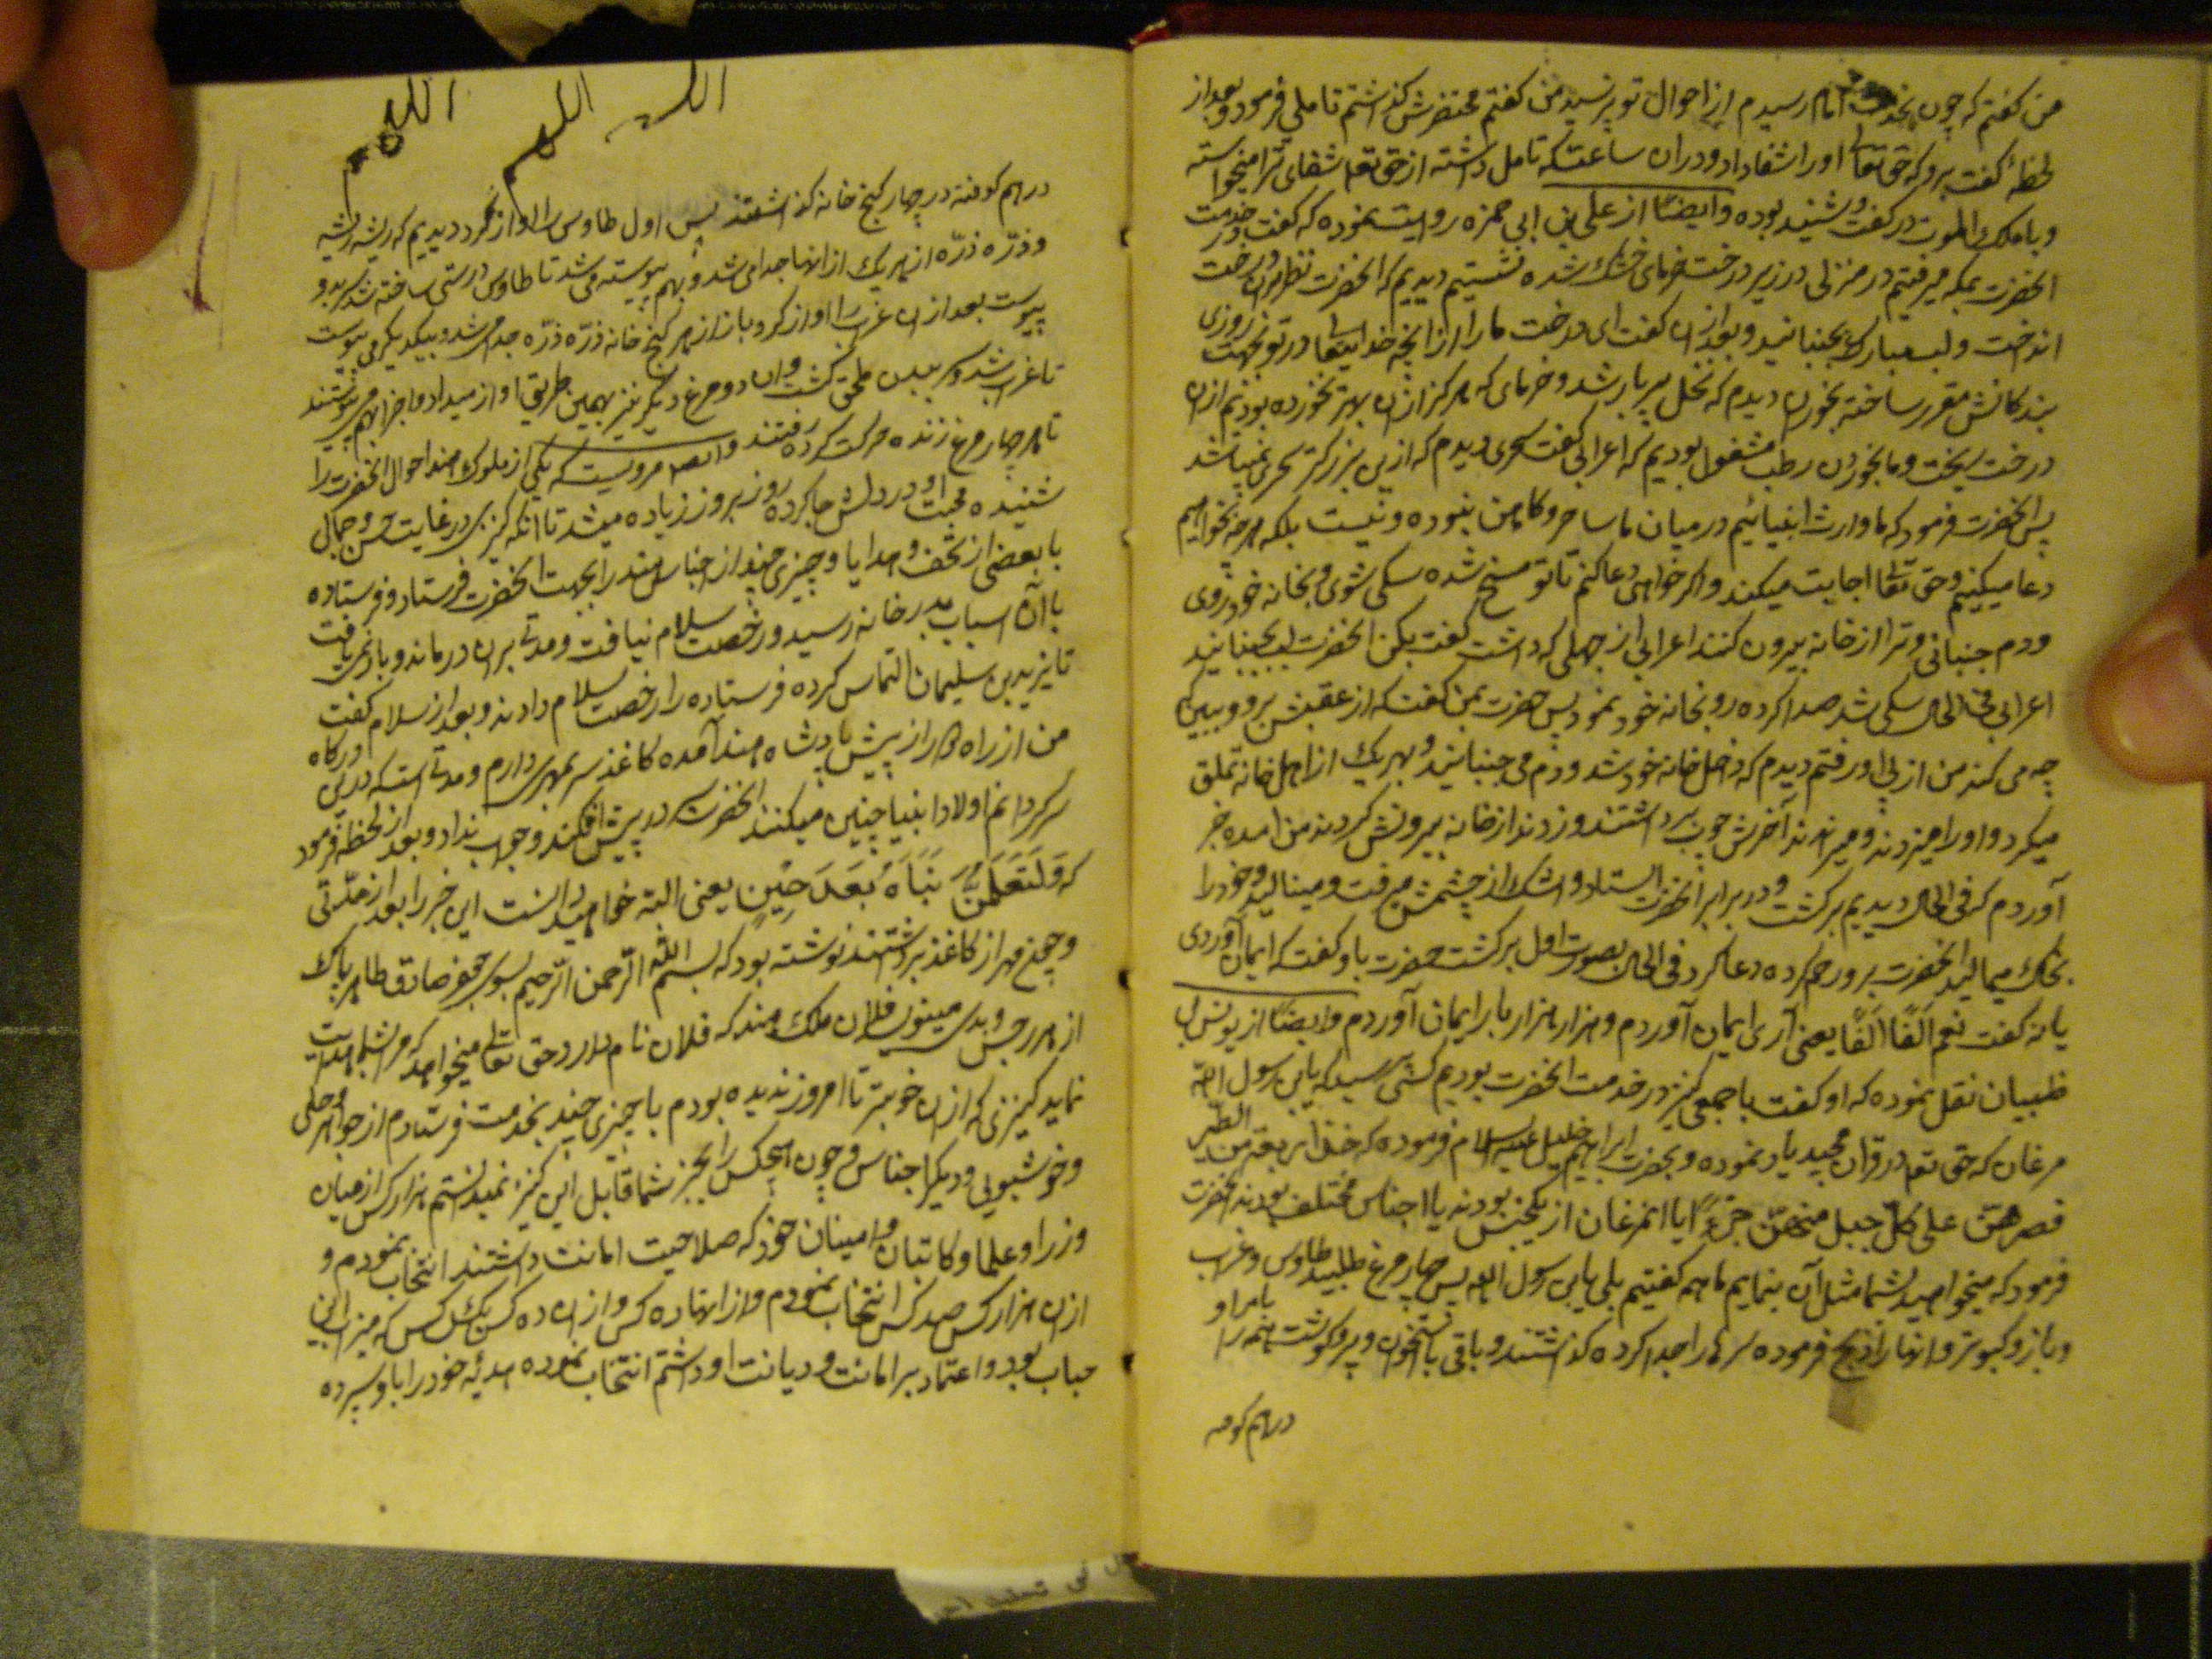 من گفتم که چون بخدمت امام رسیدم از احوال تو پرسید من گفتم محتضرش گذاشتم تاملی فرمود و بعد از
لحظهٔ گفت برو که حق تعالی او را شفا داد و در ان ساعت که تامل داشته از حق تعالی شفای ترا میخواسته
و با ملک الموت در گفت و شنید بوده و ایضاً از علی بن ابی حمزه روایت نموده که گفت در خدمت
انحضرت بمکه میرفتم در منزلی در زیر درخت خرمای خشک شده نشستیم دیدیم که انحضرت نظر بران درخت
انداخت و لب مبارک بجنبانید و بعد ازان گفت ای درخت ما را از انچه خدایتعالی در تو بجهت روزی
بندکانش مقرر ساخته بخوران دیدم که نخل پر بار شد و خرمای که هرکز ازان بهتر نخورده بودیم ازان
درخت ریخت و ما بخوردن رطب مشغول بودیم که اعرابی گفت سحری دیدم که ازین بزرکتر سحری نمیباشد
پس انحضرت فرمود که ما وارث انبیائیم در میان ما ساحر و کاهن نبوده و نیست بلکه هرچه بخواهیم
دعا میکنیم و حق تعالی اجابت میکند و اکر خواهی دعا کنم تا تو مسخ شده سکی شوی و بخانه خود روی
و دم جنبانی و ترا از خانه بیرون کنند اعرابی از جهلی که داشت گفت بکن انحضرت لب بجنبانید
اعرابی فی الحال سکی شد صدا کرده رو بخانه خود نمود پس حضرت بمن گفت که از عقبش برو و ببین که
چه می کند من از پی او رفتم دیدم که داخل خانه خود شد و دم می جنبانید و بهریک از اهل خانه تملق
میکرد و او را میزدند و میراندند آخرش چوب برداشتند و زدند از خانه بیرونش کردند من امده خبر
آوردم که فی الحال دیدیم برکشت و در برابر انحضرت استاد و اشک از چشمش میرفت و مینالید و خود را
بخاک میمالید انحضرت برو رحم کرده دعا کرد فی الحال بصورت اول برکشت حضرت باو گفت که ایمان آوردی
یا نه گفت نعم اَلفاً اَلفاً یعنی آری ایمان آوردم و هزار هزار بار ایمان آوردم و ایضاً از یونس بن
ظبیان نقل نموده که او گفت با جمعی کثیر در خدمت انحضرت بودیم کسی پرسید که یابن رسول الله
مرغان که حق تعالی در قران مجید یاد نموده و بحضرت ابراهیم خلیل علیه السلام فرموده که خذ اربعة من الطیر
فصرهن علی کل جبل منهن جزءً ایا انمرغان از یکجنس بودند یا اجناس مختلف بودند انحضرت
فرمود که میخواهید بشما مثل آن بنمایم ما هم گفتیم بلی یابن رسول الله پس چهار مرغ طلبید طاوس و غراب
و باز و کبوتر و انها را ذبح فرموده سرها را جدا کرده گذاشتند و باقی با استخوان و پر و گوشت همه را
درهم کوفته
الله اللهم اللهم
درهم کوفته در چهار کنج خانه گذاشتند پس اول طاوس را اواز کرد دیدیم که ریشه ریشه
و ذرّه ذرّه از هریک از انها جدا می شد و بهم پیوسته می شد تا طاوس درستی ساخته شد سر بدو
پیوست بعد ازان غراب را اواز کرد باز از هر کنج خانه ذرّه ذرّه جدا می شد و بیکدیکر می پیوست
تا غراب شد و سر ببدن ملحق گشت و ان دو مرغ دیکر نیز بهمین طریق اواز میداد و اجزا بهم می پیوستند
تا هر چهار مرغ زنده حرکت کرده رفتند و ایضا مرویست که یکی از ملوک هند احوال انحضرت را
شنیده محبت او در دلش جا کرده روز بروز زیاده میشد تا انکه کنیزی در غایت حسن و جمال
با بعضی از تحف و هدایا و چیزی چند از اجناس هند را بجهت انحضرت فرستاد و فرستاده
با آن اسباب بدر خانه رسید و رخصت سلام نیافت و مدتی بران در ماند و بار نمی یافت
تا یزید بن سلیمان التماس کرده فرستاده را رخصت سلام دادند و بعد از سلام گفت
من از راه دور از پیش پادشاه هند آمده کاغذ سر بمهری دارم و مدتی است که در این درکاه
سرکردانم اولاد انبیا چنین میکنند انحضرت سر در پیش افکند و جواب نداد و بعد از لحظه فرمود
که وَلَتَعلَمُنَّ نَبَاَهُ بَعدَ حِینٍ یعنی البته خواهید دانست این خبر را بعد از مدّتی
و چون مهر از کاغذ برداشتند نوشته بود که بسم الله الرّحمن الرّحیم بسوی جعفر صادق طاهر پاک
از هر رجس و بدی مینویسد فلان ملک هند که فلان نام دارد حق تعالی میخواهد که مرا بشما هدایت
نماید کنیزی که ازان خوبتر تا امروز ندیده بودم با چیزی چند بخدمت فرستادم از جواهر و حلی
و خوشبویی و دیکر اجناس و چون هیچکس را بجز شما قابل این کنیز نمیدانستم هزار کس از میان
وزرا و علما و کاتبان و امینان خود که صلاحیت امانت داشتند انتخاب نمودم و
ازان هزار کس صد کس انتخاب نمودم و از انها ده کس و ازان ده کس یک کس که میزاب بن
حباب بود و اعتماد بر امانت و دیانت او داشتم انتخاب نموده هدیهٔ خود را باو سپرده